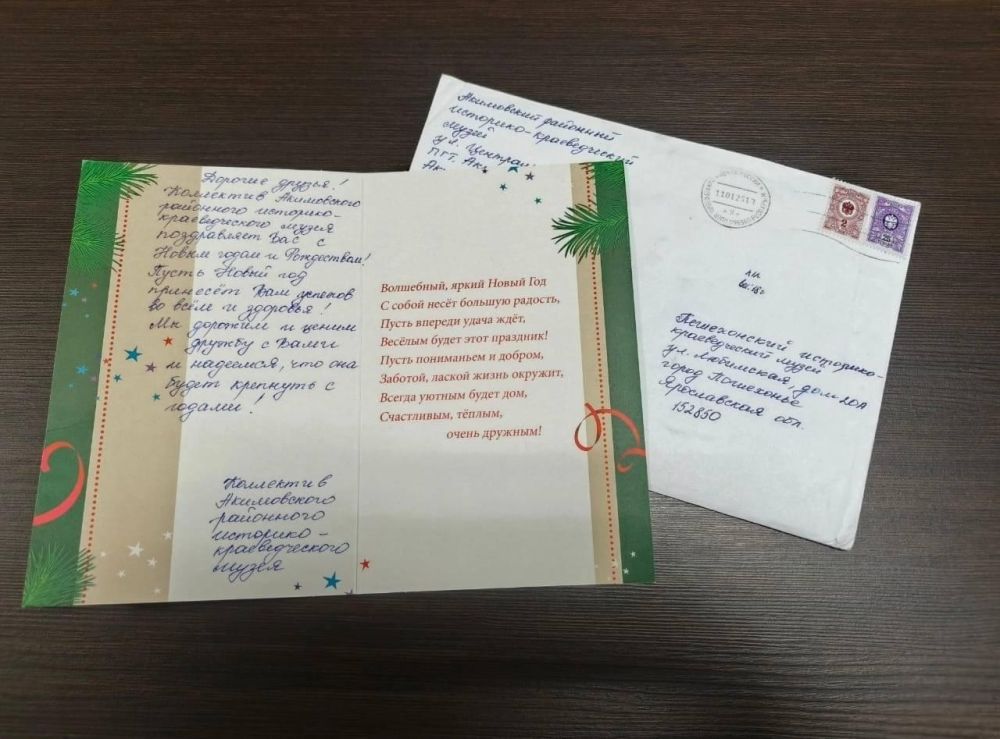 Дорогие друзья!
Коллектив Акимовского
районного историко-
краеведческого музея
поздравляет Вас с
Новым годом и Рождеством!
Пусть Новый год
принесёт Вам успехов
во всём и здоровья!
Мы дорожим и ценим
дружбу с Вами
и надеемся, что она
будет крепнуть с
годами!
Коллектив
Акимовского
районного
историко-
краеведческого
музея
Волшебный, яркий Новый Год
С собой несёт большую радость,
Пусть впереди удача ждёт,
Весёлым будет этот праздник!
Пусть пониманьем и добром,
Заботой, лаской жизнь окружит,
Всегда уютным будет дом,
Счастливым, тёплым,
очень дружным!
Акимовский районный
историко-краеведческий
музей
ул. Центра
пгт. Ак
Ак
2
Пошехонский историко-
краеведческий музей
ул. Любимская, дом 20А
город Пошехонье
Ярославская обл.
152850